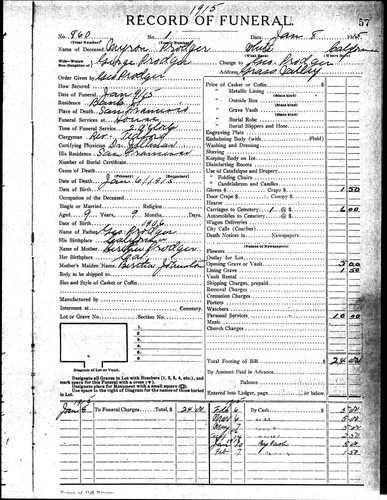 1915
RECORD OF FUNERAL.
57
No. 860 No. 1 Date Jan 8 1915
(Total Number) (Yearly Number)
Name of Deceased Myron Prodger White California
(What Race) (Where Born)
Wife-Widow Son-Daughter of George Prodger Charge to Geo. Prodger
Address Grass Valley
Order Given by Geo Prodger
How Secured
Date of Funeral Jan 9/15
Residence
Place of Death San Francisco
Funeral Services at House
Time of Funeral Service 2 o'clock
Clergyman Rev.
Certifying Physician Dr.
His Residence San Francisco
Number of Burial Certificate
Cause of Death
(Primary) (Secondary)
Date of Death Jan 6/1915
Date of Birth
Occupation of the Deceased
Single or Married Religion
Aged 9 Years 9 Months. Days
Date of Birth
Name of Father Geo Prodger
His Birthplace California
Name of Mother Bertha Prodger
Her Birthplace Cal
Mother's Maiden Name Bertha Johnston
Body to be shipped to
Size and Style of Casket or Coffin
Manufactured by
Interment at Cemetery
Lot or Grave No. Section No.
1
2
3
4
5
Diagram of Lot or Vault.
Designate all Graves in Lot with Numbers (1, 2, 3, 4, etc.), and
mark space for this Funeral with a cross (+).
Designate place for Monument with a small square (□).
Use space to right of Diagram for the names of those buried
in Lot.
Price of Casket or Coffin
Metallic Lining
(State kind)
Outside Box
(State kind)
Grave Vault
(State kind)
Burial Robe
(State kind)
Burial Slippers and Hose
Engraving Plate
Embalming Body (with Fluid)
Washing and Dressing
Shaving
Keeping Body on Ice
Disinfecting Rooms
Use of Catafalque and Drapery
" Folding Chairs
" Candelabrum and Candles
Gloves $ Crape $ 1 50
Door Crape $ Canopy $
Hearse
Carriages to Cemetery 1 @ $ 6 00
Automobiles to Cemetery @ $
Wagon Deliveries
City Calls (Coaches)
Death Notices in Newspapers
(Names of Newspapers)
Flowers
Outlay for Lot
Opening Grave or Vault 5 00
Lining Grave 1 50
Vault Rental
Shipping Charges, prepaid
Removal Charges
Cremation Charges
Porters
Watchers
Personal Services 10 00
Music
Church Charges
Total Footing of Bill $ 24 00
By Amount Paid in Advance
Balance
Entered into Ledger, page or below.
1915
Jan 8 To Funeral Charges Total, $ 24 00
Feb 6 By Cash 5 00
Mar 6 " 5 00
May 7 " 5 00